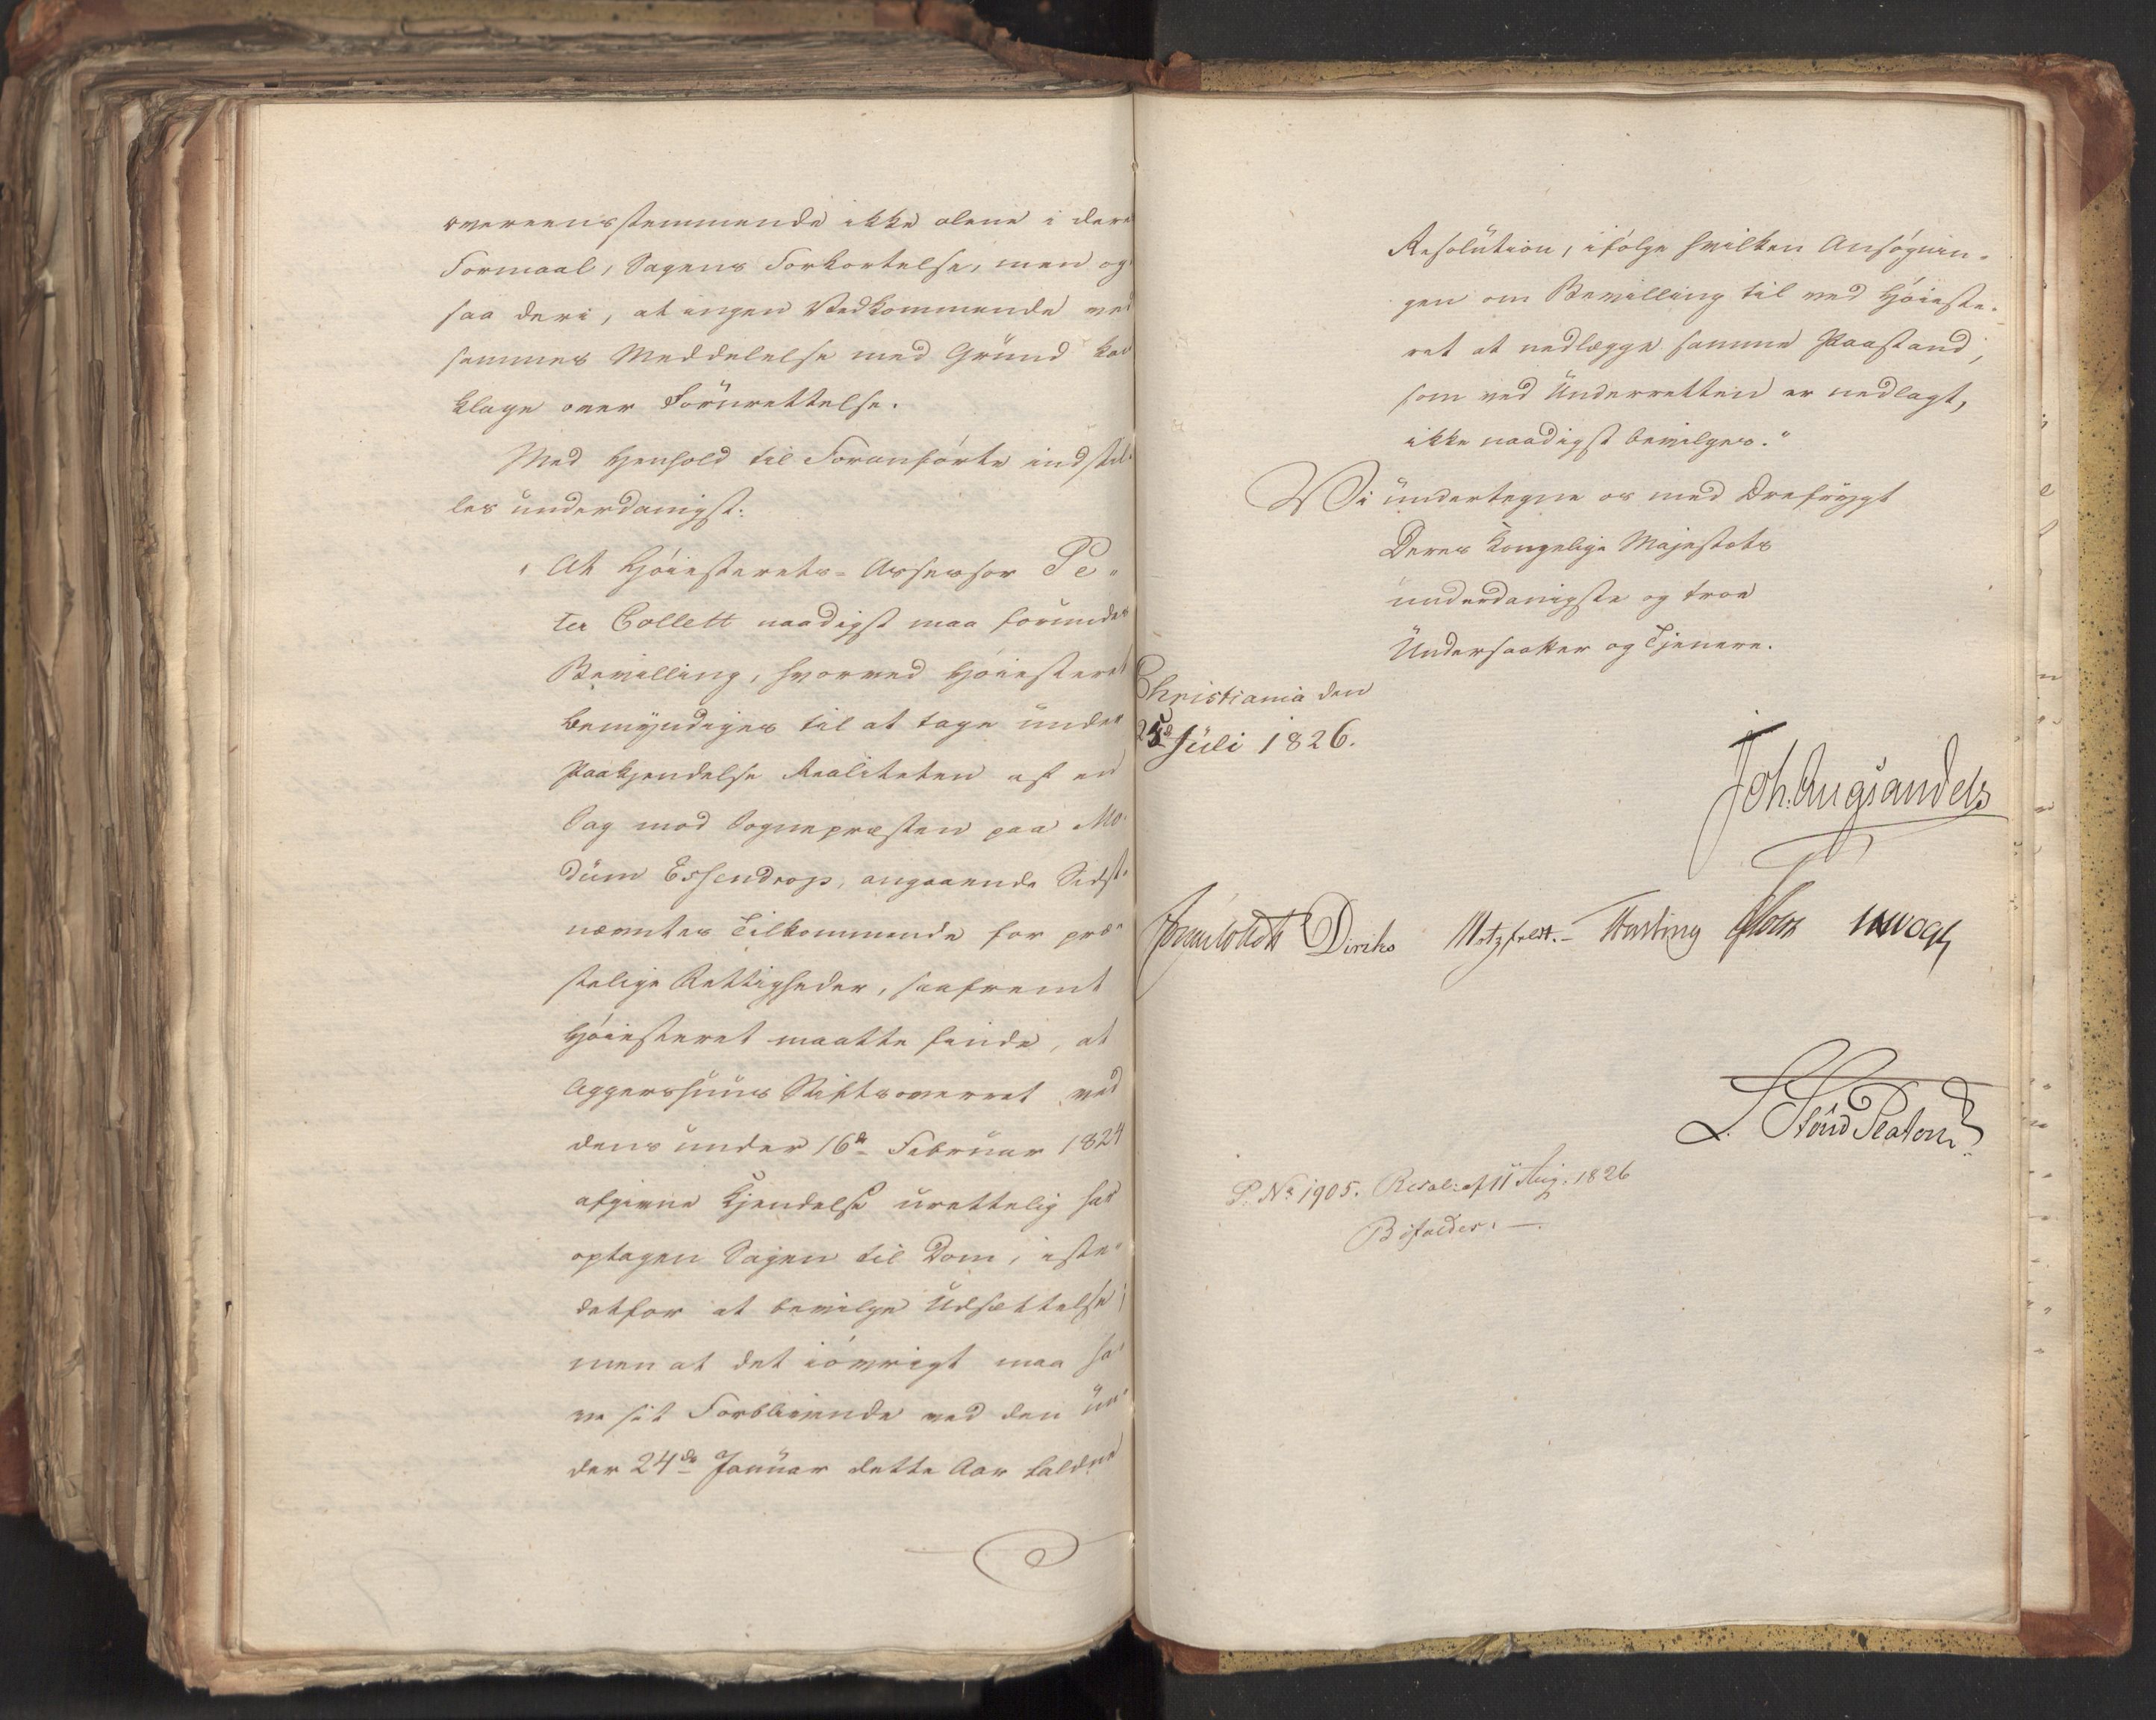 overeensstemmende ikke alene i dere
Formaal, Sagens Forkortelse, men og
saa deri, at ingen Vedkommende ved
sammes Meddelelse med Grund kan
klage over Fornrettelse.
Med Henhold til Foranførte indstil-
les underdanigst:
"At Høiesterets-Assessor Pe-
ter Collett naadigst maa forundes
Bevilling, hvorved Høiesteret
bemyndiges til at tage under
Paakjendelse Realiteten af en
Sag mod Sognepræsten paa Mo-
dum Essendrop, angaaende Sidst-
nævntes Tilkommende for præ-
stelige Rettigheder, saafremt
Høiesteret maatte finde, at
Aggershuus Stiftsoverret ved
dens under 16de Februar 1824
afgivne Kjendelse urettelig har
optagen Sagen til Dom, iste-
detfor at bevilge Udsættelse;
men at det iøvrigt maa ha-
ve sit Forblivende ved den un-
der 24de Januar dette Aar faldne
Resolution, ifølge hvilken Ansøgnin-
gen om Bevilling til ved Høieste-
ret at nedlægge samme Paastand,
som ved Underretten er nedlagt,
ikke naadigst bevilges."
Vi undertegne os med Ærefrygt
Deres Kongelige Majestæts
underdanigste og troe
Undersaatter og Tjenere.
Christiania den
25de Juli 1826.
Joh. Aug Sandels
Jonas Collett Diriks Motzfeldt. Fasting JHolst JHVogt
L. Stoud Platou
P. No 1905. Resol: af 11 Aug. 1826
Bifaldes.